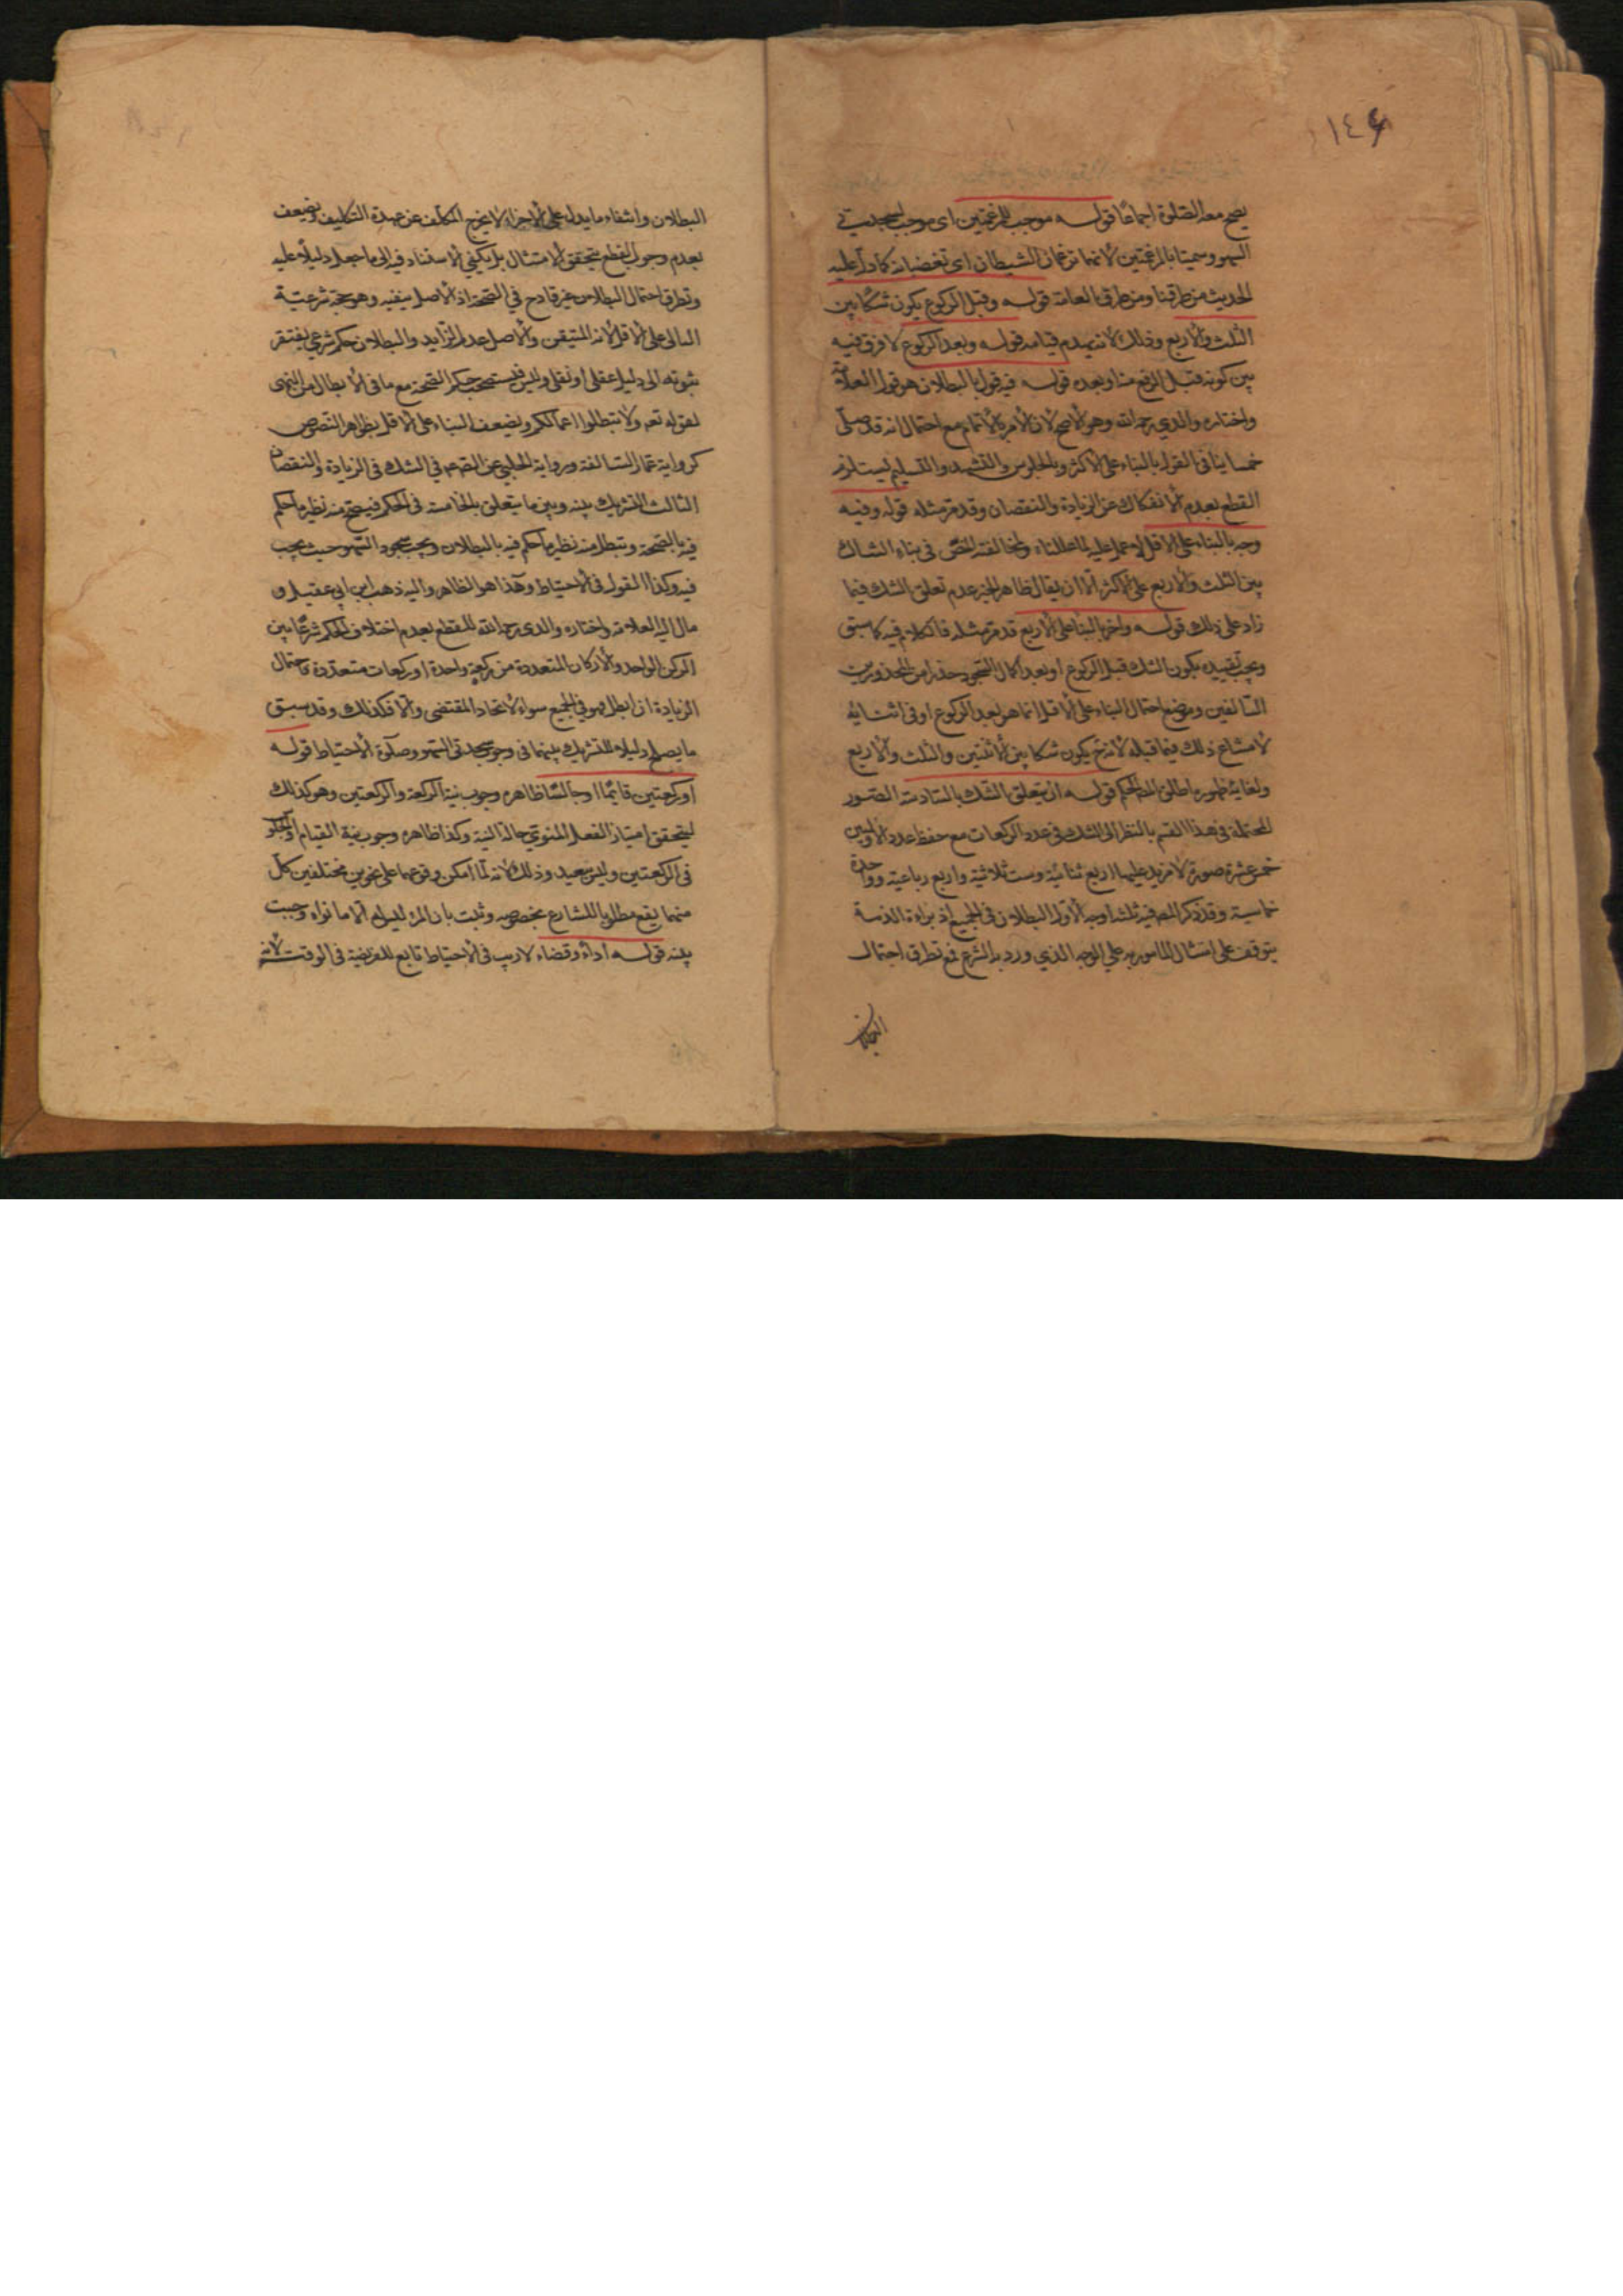 ١٤٤
يصح معه الصلوة اجماعا قوله موجب للمرغمتين اى موجب لسجدتي
السهو وسميتا بالمرغمتين لانهما ترغمان الشيطان اى تغضبانه كما دل عليه
الحديث من طرقنا ومن طرق العامة قوله وقبل الركوع يكون شكا بين
الثلث والاربع وذلك لانه يهدم قيامه قوله وبعد الركوع لا فرق فيه
بين كونه قبل الرفع منه او بعده قوله فيه قول بالبطلان هو قول العلامة
واختاره والدي رحمه الله وهو الاصح لان الامر بالاتمام مع احتمال انه قد صلى
خمسا ينافى القول بالبناء على الاكثر وبالجلوس والتشهد والتسليم يستلزم
القطع بعدم الانفكاك عن الزيادة والنقصان وقد مر مثله قوله وفيه
وجه بالبناء على الاقل لا عمل عليه لما عللناه ولمخالفته النص فى بناء الشاك
بين الثلث والاربع على الاكثر الا ان يقال ظاهر الخبر عدم تعلق الشك فيما
زاد على ذلك قوله واخر بالبناء على الاربع قد مر مثله فالكلام فيه كما سبق
ويجب تقييده بكون الشك قبل الركوع او بعد اكمال السجود حذرا من المحذورين
السالفين وموضع احتمال البناء على الاقل انما هو بعد الركوع او فى اثنائه
لامتناع ذلك فيما قبله لانه ح يكون شكا بين الاثنتين والثلث والاربع
ولغاية ظهوره اطلق المص الحكم قوله ان يتعلق الشك بالسادسة الصور
المحتملة فى هذا القسم بالنظر الى الشك فى عدد الركعات مع حفظ عدد الاوليين
خمس عشرة صورة لا مزيد عليها اربع ثنائية وست ثلاثية واربع رباعية وواحدة
خماسية وقد ذكر المص فيه ثلثة اوجه الاول البطلان فى الجميع اذ براءة الذمة
يتوقف على امتثال المامور به على الوجه الذي ورد به الشرع فمع تطرق احتمال
البطلان
البطلان وانتفاء ما يدل على الاجزاء لا يخرج المكلف عن عهدة التكليف ويضعف
بعدم وجوب القطع بتحقق الامتثال بل يكفي الاستناد فيه الى ما جعل دليلا عليه
وتطرق احتمال البطلان غير قادح في الصحة اذ الاصل ينفيه وهو حجة شرعية
الثانى على الاقل لانه المتيقن والاصل عدم الزايد والبطلان حكم شرعي يفتقر
ثبوته الى دليل عقلى او نقلى وليس فيستصحب حكم الصحة مع ما فى الابطال من النهى
لقوله تعه ولا تبطلوا اعمالكم ويضعف البناء على الاقل بظواهر النصوص
كرواية عمار السالفة ورواية الحلبي عن الصه عم في الشك فى الزيادة والنقصان
الثالث التشريك بينه وبين ما يتعلق بالخامسة فى الحكم فيصح منه نظير ما حكم
فيه بالصحة وتبطل منه نظير ما حكم فيه بالبطلان ويجب سجود السهو حيث يجب
فيه وكذا القول فى الاحتياط وهذا هو الظاهر واليه ذهب ابن ابي عقيل و
مال اليه العلامة واختاره والدى رحمه الله للقطع بعدم اختلاف الحكم شرعا بين
الركن الواحد والاركان المتعددة من ركعة واحدة او ركعات متعددة فاحتمال
الزيادة ان ابطل فهو في الجميع سواء لاتحاد المقتضى والا فكذلك وقد سبق
ما يصلح دليلا للتشريك بينهما فى وجوب سجدتى السهو وصلوة الاحتياط قوله
او ركعتين قائما او جالسا ظاهره وجوب نية الركعة والركعتين وهو كذلك
ليتحقق امتياز الفعل المنوي حالة النية وكذا ظاهره وجوب نية القيام او الجلو
فى الركعتين وليس ببعيد وذلك لانه لما امكن وقوعها على نحوين مختلفين كل
منهما يقع مطلوبا للشارع بخصوصه وثبت بان المرء ليس له الا ما نواه وجبت
نيته قوله اداء وقضاء لا ريب فى الاحتياط تابع للفريضة فى الوقت لانه